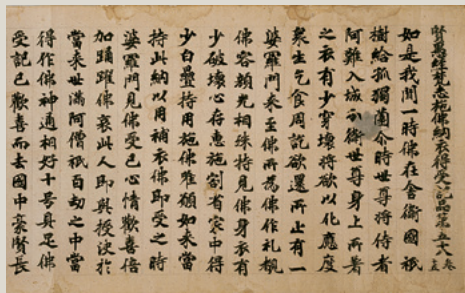 賢愚經梵志施佛納衣得受記品第五十八
如是我聞一時佛在舍衛國祇
樹給孤獨園尒時世尊將侍者
阿難入城分衛世尊身上所著
之衣有少穿壞將欲以化應度
衆生乞食周訖欲還所止有一
婆羅門來至佛所爲佛作礼覩
佛容顏光相殊特見佛身衣有
少破壞心存惠施割省家中得
少白疊持用施佛唯願如來當
持此納以用補衣佛即受之時
婆羅門見佛受已心情歡喜倍
加踊躍佛哀此人即與授決於
當來世滿阿僧祇百劫之中當
得作佛神通相好十号具足佛
受記已歡喜而去國中豪賢長